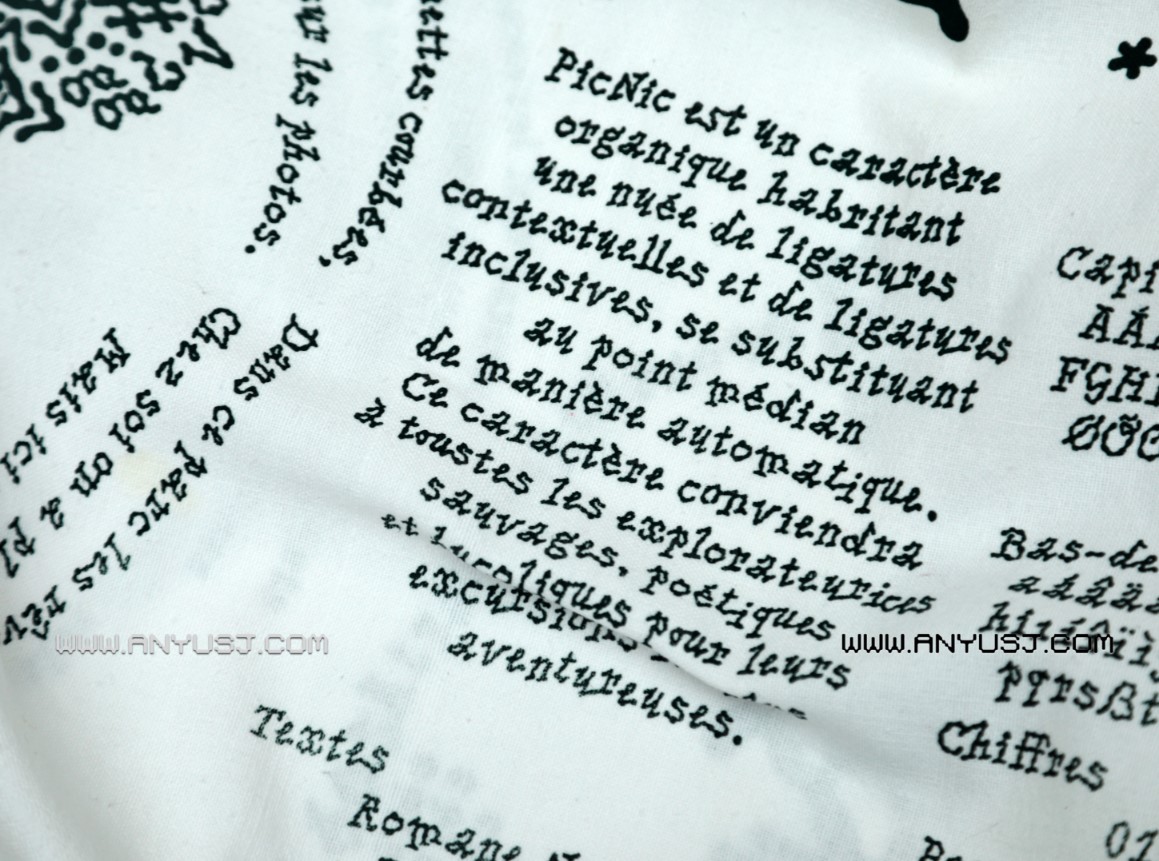 ettes courbées,
ur les photos.
Mais ici
Chez soi on a pl
Dans ce parc les rêv
PicNic est un caractère
organique habritant
une nuée de ligatures
contextuelles et de ligatures
inclusives, se substituant
au point médian
de manière automatique.
Ce caractère conviendra
à toustes les explorateurices
sauvages, poétiques
et bucoliques pour leurs
excursions
aventureuses.
Textes
Romane
Capi
AÁ
FGHI
ØÕ
Bas-de
aáâä
pqrsßt
Chiffres
01
www.ANYUSJ.com
www.ANYUSJ.com